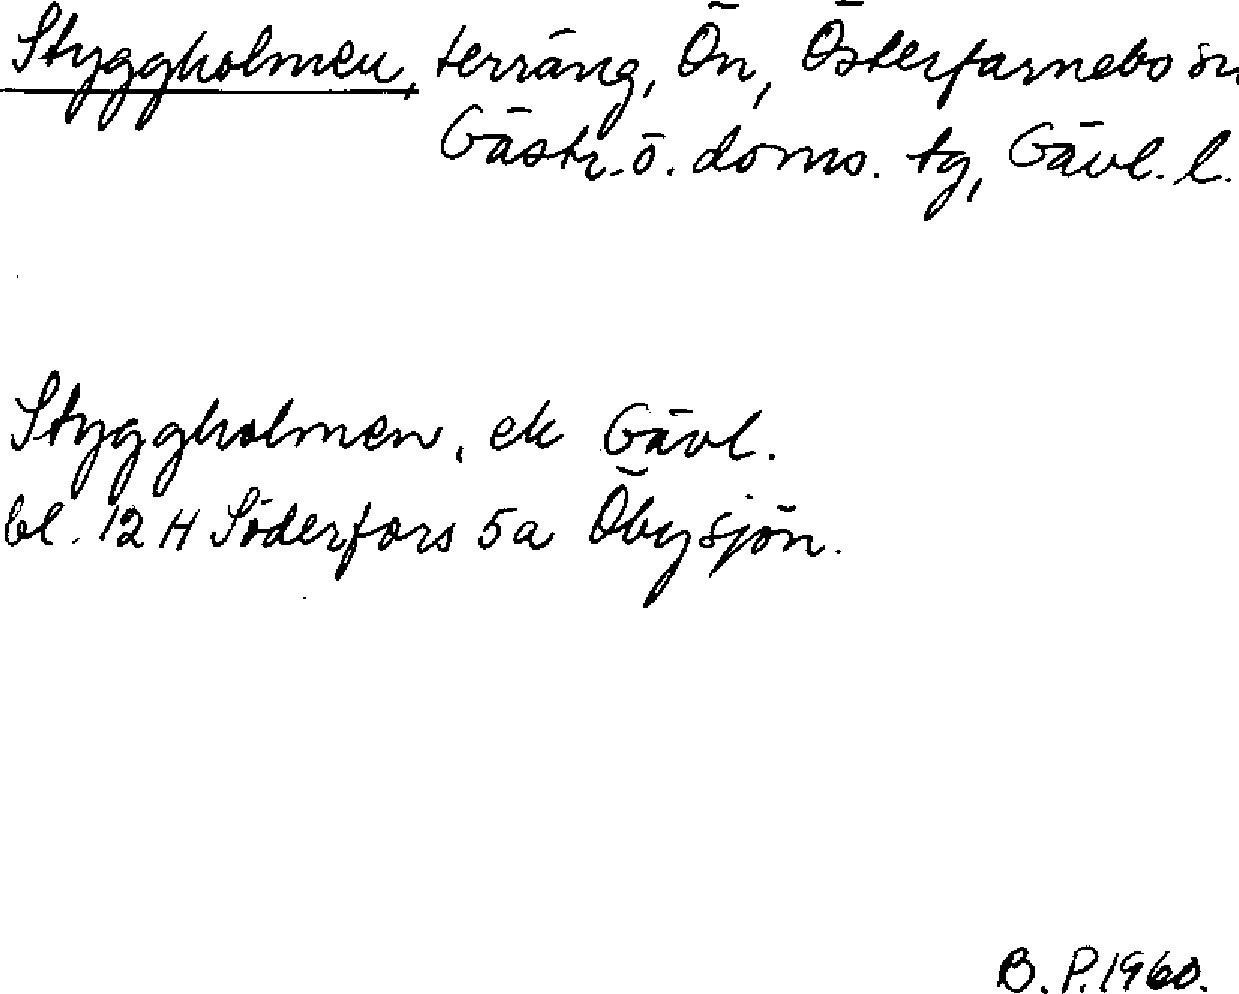 Styggholmen, terräng, Ön, Österfärnebo sn
Gästr. ö. doms. tg, Gävl. l.
Styggholmen, ek Gävl.
bl. 12 H Söderfors 5a Öbysjön.
B. P. 1960.